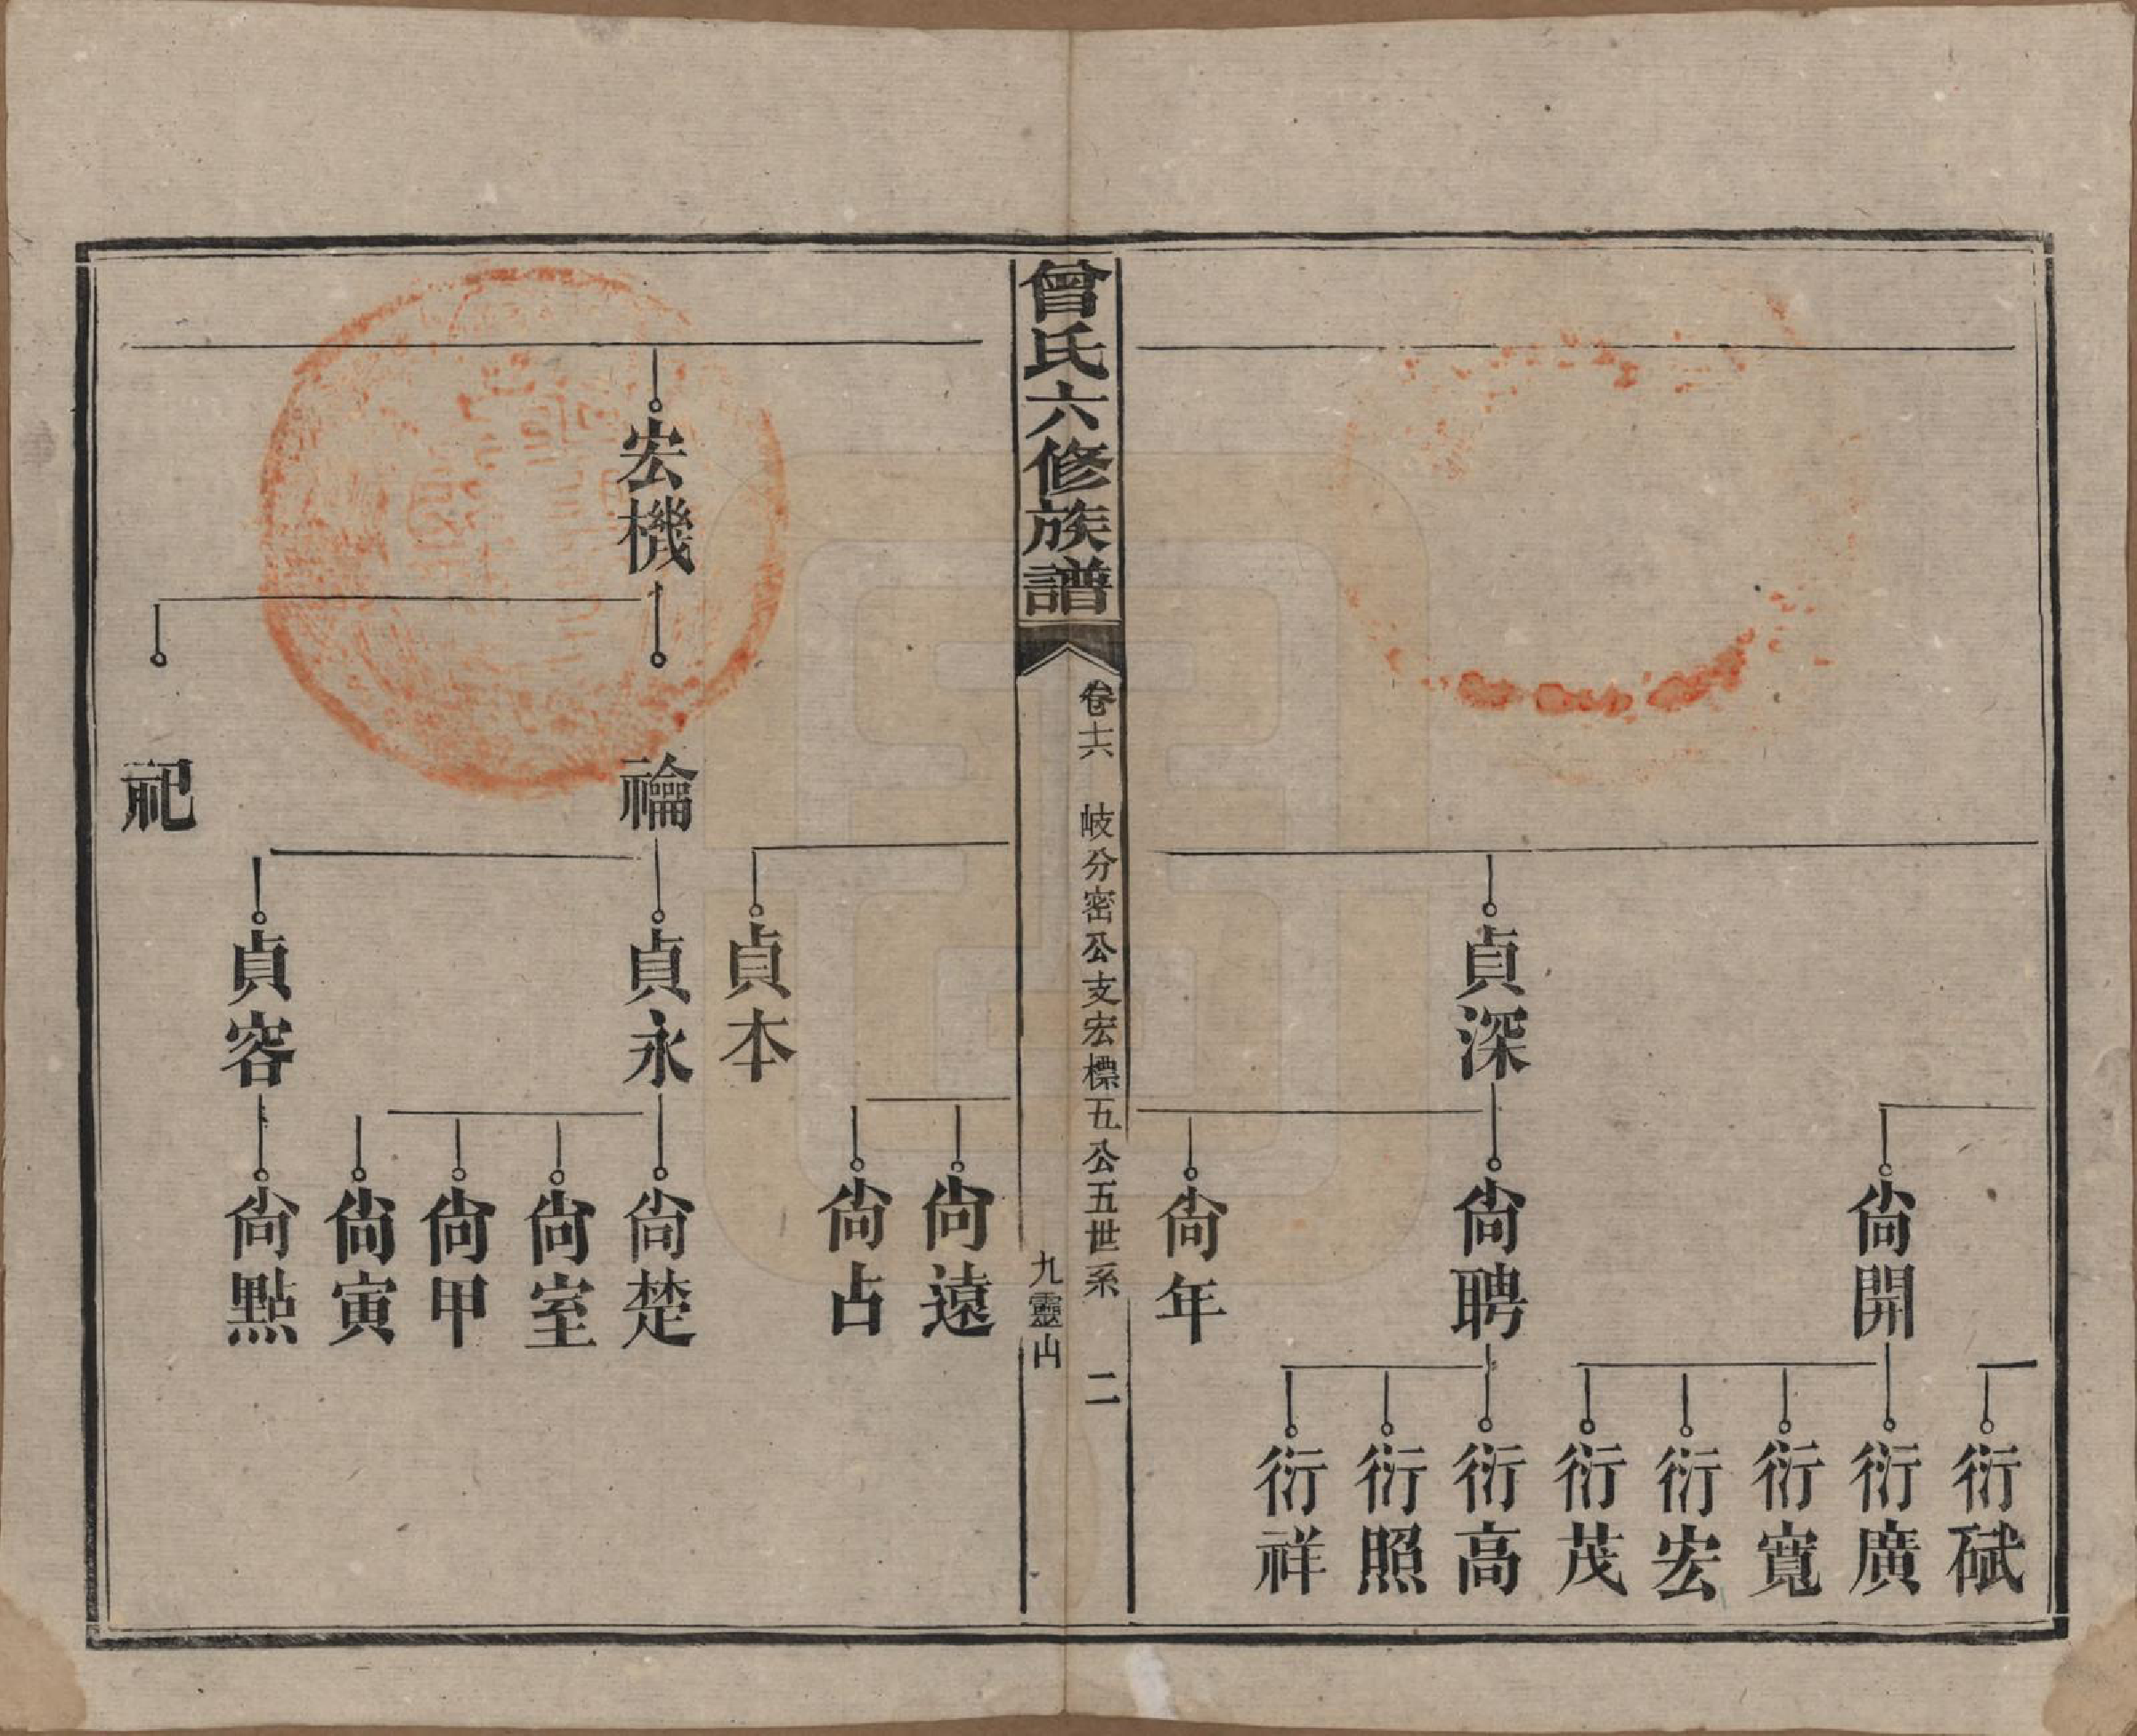 衍碔
尙開
衍廣
衍寬
衍宏
衍茂
貞深
尙聘
衍高
衍照
衍祥
尙年
曾氏六修族譜
卷十六 岐分密公支宏標五公五世系 二
九靈山
尙遠
尙占
貞本
宏機
禴
貞永
尙楚
尙室
尙甲
尙寅
貞容
尙點
祀